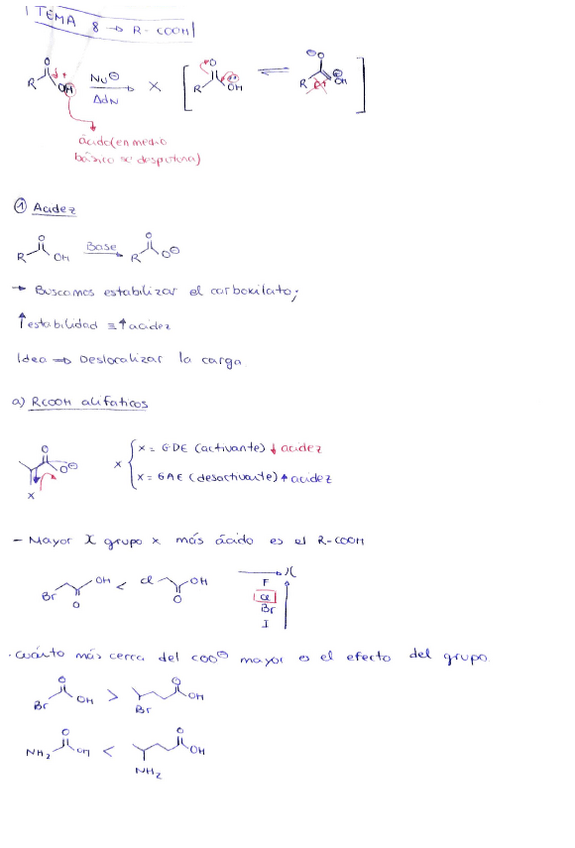 TEMA 8 → R-COOH
O O ⊖O
R OH Nu⊖ X R OH ⇌ R OH
AdN
ácido (en medio
básico se desprotona)
① Acidez
O O
R OH Base R O⊖
→ Buscamos estabilizar el carboxilato;
↑estabilidad ≡ ↑acidez
Idea ⇒ Deslocalizar la carga
a) RCOOH alifaticos
O
O⊖
X
X { X = GDE (activante) ↓ acidez
X = GAE (desactivante) ↑ acidez
- Mayor X grupo x más ácido es el R-COOH
Br OH O < Cl OH O
F
Cl
Br
I
· Cuánto más cerca del COO⊖ mayor es el efecto del grupo.
O O
Br OH > Br OH
O O
NH2 OH < OH
NH2